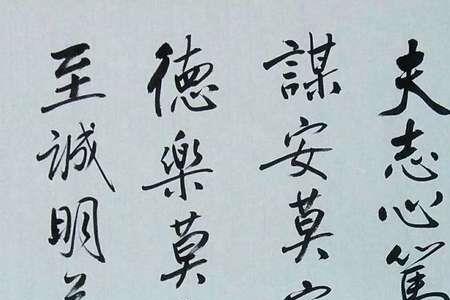 夫志心篤
謀安莫
德樂莫
至誠明